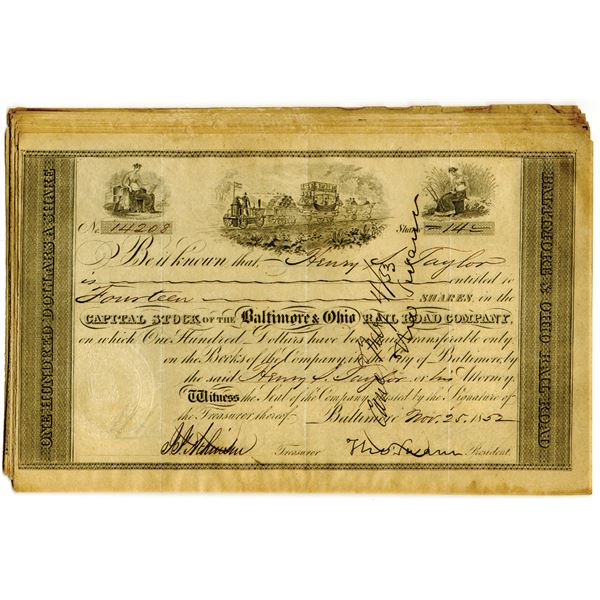 ONE HUNDRED DOLLARS A SHARE.
No. 14208
Shares 14
Be it known that, Henry S. Taylor
is entitled to
Fourteen SHARES, in the
CAPITAL STOCK OF THE Baltimore & Ohio RAIL ROAD COMPANY,
on which One Hundred Dollars have been transferable only
on the Books of the Company, in the City of Baltimore, by
the said Henry S. Taylor or his Attorney.
Witness the Seal of the Company, attested by the Signature of
the Treasurer thereof. Baltimore Nov. 25, 1852
Treasurer Tho. Swann President.
Tho Swann
BALTIMORE & OHIO RAIL ROAD.